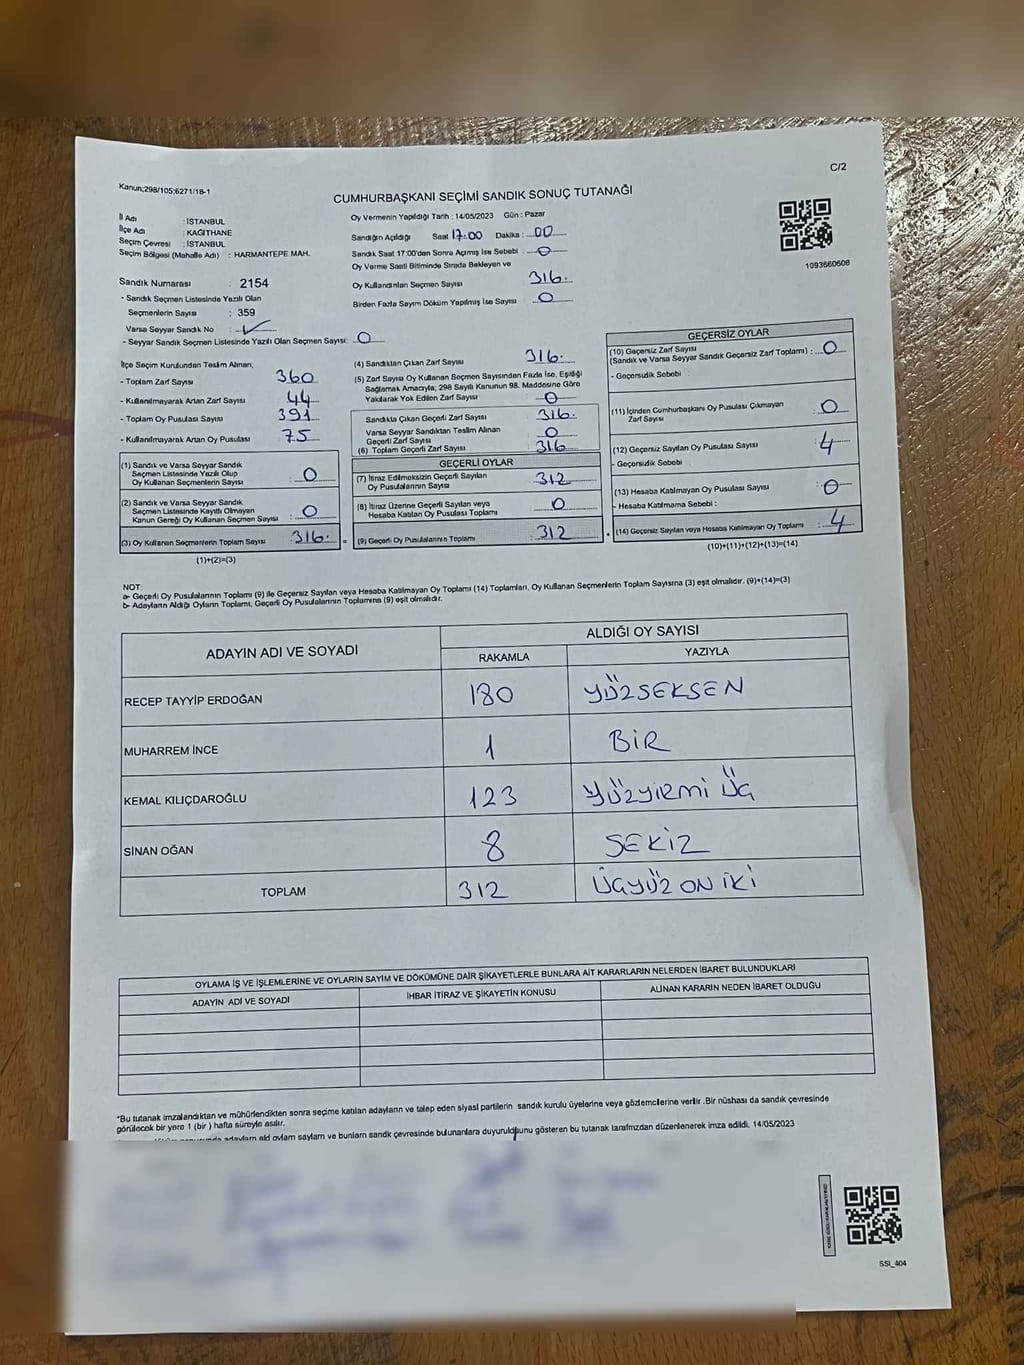 C/2
Kanun;298/105;6271/18-1
CUMHURBAŞKANI SEÇİMİ SANDIK SONUÇ TUTANAĞI
İl Adı : İSTANBUL
İlçe Adı : KAĞITHANE
Seçim Çevresi : İSTANBUL
Seçim Bölgesi (Mahalle Adı) : HARMANTEPE MAH.
Sandık Numarası : 2154
- Sandık Seçmen Listesinde Yazılı Olan
Seçmenlerin Sayısı : 359
Varsa Seyyar Sandık No :
- Seyyar Sandık Seçmen Listesinde Yazılı Olan Seçmen Sayısı: 0
Oy Vermenin Yapıldığı Tarih : 14/05/2023 Gün : Pazar
Sandığın Açıldığı Saat 17:00 Dakika : 00
Sandık Saat 17:00'den Sonra Açmış İse Sebebi : 0
Oy Verme Saati Bitiminde Sırada Bekleyen ve
Oy Kullandırılan Seçmen Sayısı 316.
Birden Fazla Sayım Döküm Yapılmış İse Sayısı : 0
1093660606
İlçe Seçim Kurulundan Teslim Alınan;
- Toplam Zarf Sayısı 360
- Kullanılmayarak Artan Zarf Sayısı 44
- Toplam Oy Pusulası Sayısı 391
- Kullanılmayarak Artan Oy Pusulası 75
(1) Sandık ve Varsa Seyyar Sandık
Seçmen Listesinde Yazılı Olup
Oy Kullanan Seçmenlerin Sayısı : 0
(2) Sandık ve Varsa Seyyar Sandık
Seçmen Listesinde Kayıtlı Olmayan
Kanun Gereği Oy Kullanan Seçmen Sayısı : 0
(3) Oy Kullanan Seçmenlerin Toplam Sayısı : 316.
(1)+(2)=(3)
(4) Sandıktan Çıkan Zarf Sayısı 316.
(5) Zarf Sayısı Oy Kullanan Seçmen Sayısından Fazla İse, Eşitliği
Sağlamak Amacıyla; 298 Sayılı Kanunun 98. Maddesine Göre
Yakılarak Yok Edilen Zarf Sayısı : 0
Sandıkta Çıkan Geçerli Zarf Sayısı : 316.
Varsa Seyyar Sandıktan Teslim Alınan
Geçerli Zarf Sayısı : 0
(6) Toplam Geçerli Zarf Sayısı : 316
GEÇERLİ OYLAR
(7) İtiraz Edilmeksizin Geçerli Sayılan
Oy Pusulalarının Sayısı : 312
(8) İtiraz Üzerine Geçerli Sayılan veya
Hesaba Katılan Oy Pusulası Toplamı : 0
(9) Geçerli Oy Pusulalarının Toplamı : 312
GEÇERSİZ OYLAR
(10) Geçersiz Zarf Sayısı
(Sandık ve Varsa Seyyar Sandık Geçersiz Zarf Toplamı) : 0
- Geçersizlik Sebebi :
(11) İçinden Cumhurbaşkanı Oy Pusulası Çıkmayan
Zarf Sayısı : 0
(12) Geçersiz Sayılan Oy Pusulası Sayısı : 4
- Geçersizlik Sebebi :
(13) Hesaba Katılmayan Oy Pusulası Sayısı : 0
- Hesaba Katılmama Sebebi :
(14) Geçersiz Sayılan veya Hesaba Katılmayan Oy Toplamı : 4
(10)+(11)+(12)+(13)=(14)
NOT:
a- Geçerli Oy Pusulalarının Toplamı (9) ile Geçersiz Sayılan veya Hesaba Katılmayan Oy Toplamı (14) Toplamları, Oy Kullanan Seçmenlerin Toplam Sayısına (3) eşit olmalıdır. (9)+(14)=(3)
b- Adayların Aldığı Oyların Toplamı, Geçerli Oy Pusulalarının Toplamına (9) eşit olmalıdır.
ADAYIN ADI VE SOYADI
ALDIĞI OY SAYISI
RAKAMLA YAZIYLA
RECEP TAYYİP ERDOĞAN 180 YÜZSEKSEN
MUHARREM İNCE 1 BİR
KEMAL KILIÇDAROĞLU 123 YÜZYİRMİ ÜÇ
SİNAN OĞAN 8 SEKİZ
TOPLAM 312 ÜÇYÜZ ON İKİ
OYLAMA İŞ VE İŞLEMLERİNE VE OYLARIN SAYIM VE DÖKÜMÜNE DAİR ŞİKAYETLERLE BUNLARA AİT KARARLARIN NELERDEN İBARET BULUNDUKLARI
ADAYIN ADI VE SOYADI İHBAR İTİRAZ VE ŞİKAYETİN KONUSU ALINAN KARARIN NEDEN İBARET OLDUĞU
*Bu tutanak imzalandıktan ve mühürlendikten sonra seçime katılan adayların ve talep eden siyasi partilerin sandık kurulu üyelerine veya gözlemcilerine verilir .Bir nüshası da sandık çevresinde
görülecek bir yere 1 (bir ) hafta süreyle asılır.
adayların ald oyların sayıların ve bunların sandık çevresinde bulunanlara duyurulduğunu gösteren bu tutanak tarafımızdan düzenlenerek imza edildi. 14/05/2023
SSI_404